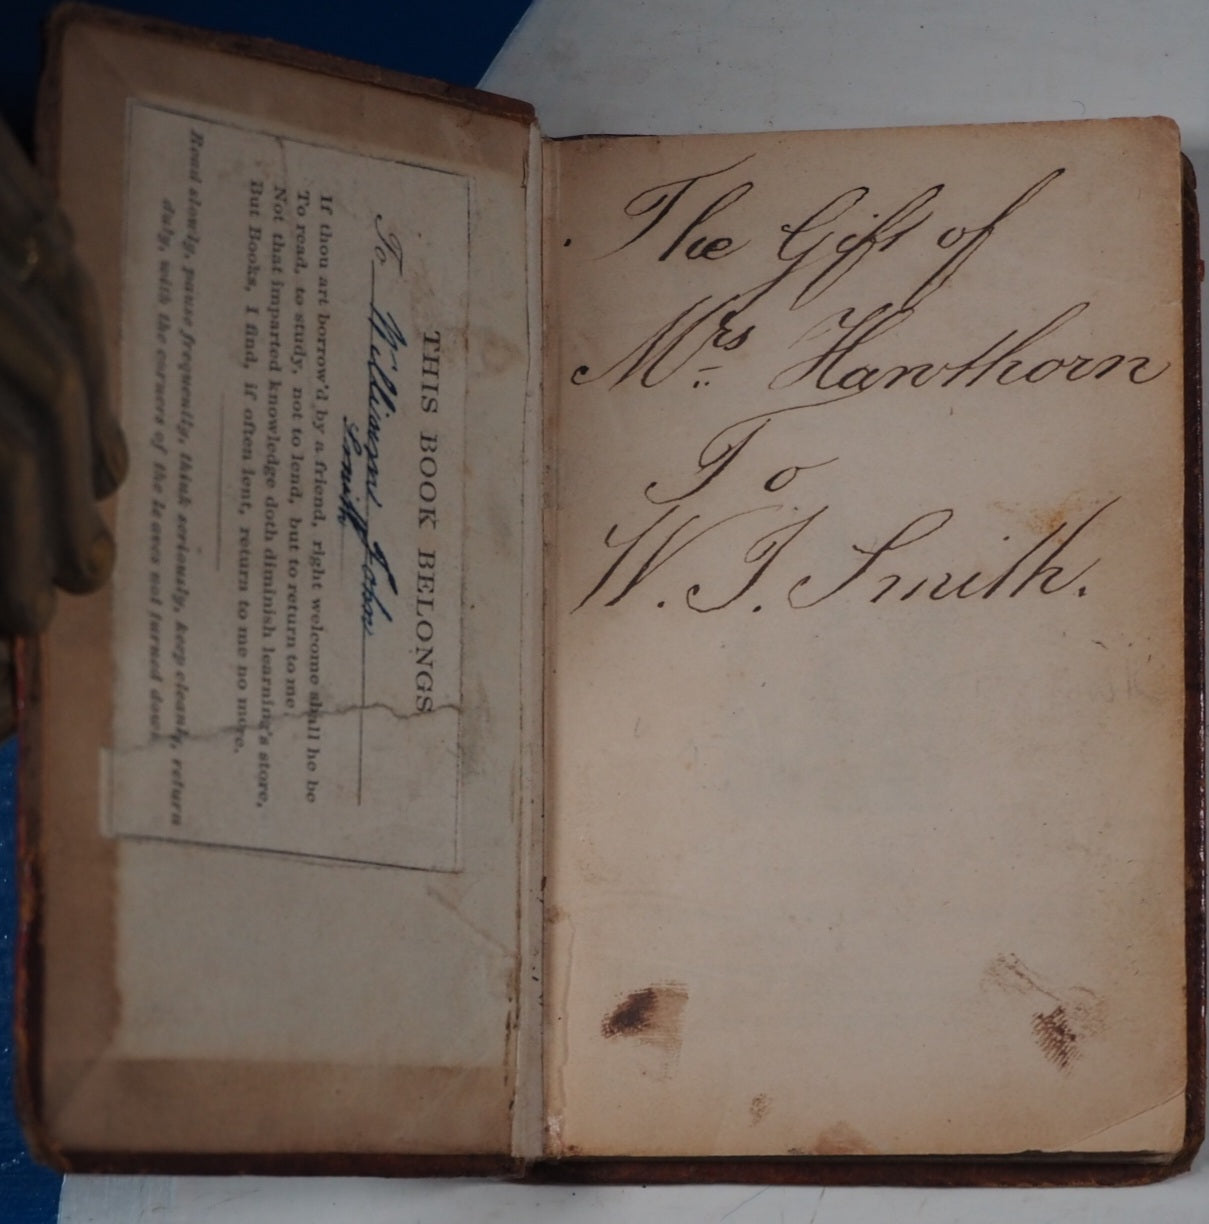 THIS BOOK BELONGS
To William John
Smith
If thou art borrow'd by a friend, right welcome shall he be
To read, to study, not to lend, but to return to me
Not that imparted knowledge doth diminish learning's store,
But Books, I find, if often lent, return to me no more.
Read slowly, pause frequently, think seriously, keep cleanly, return
duly, with the corners of the leaves not turned down.
The Gift of
Mrs Hawthorn
To
W. J. Smith.